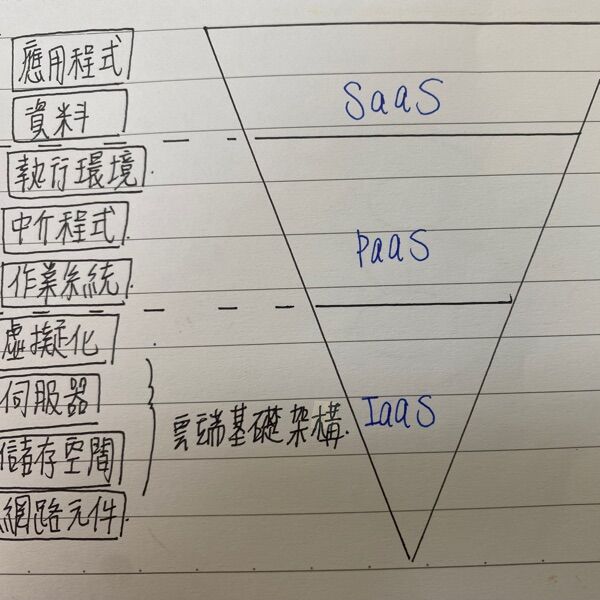 應用程式
資料
SaaS
執行環境
中介程式
PaaS
作業系統
虛擬化
伺服器
雲端基礎架構
IaaS
儲存空間
網路元件